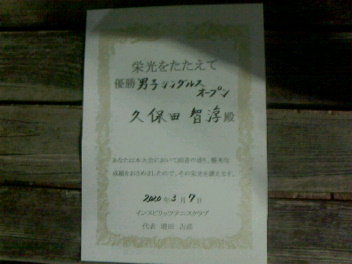 栄光をたたえて
優勝 男子シングルス
オープン
久保田 智淳 殿
あなたは本大会において頭書の通り、優秀な
成績をおさめましたので、その栄光を讃えます。
2010年3月7日
インスピリッツテニスクラブ
代表 増田 吉彦